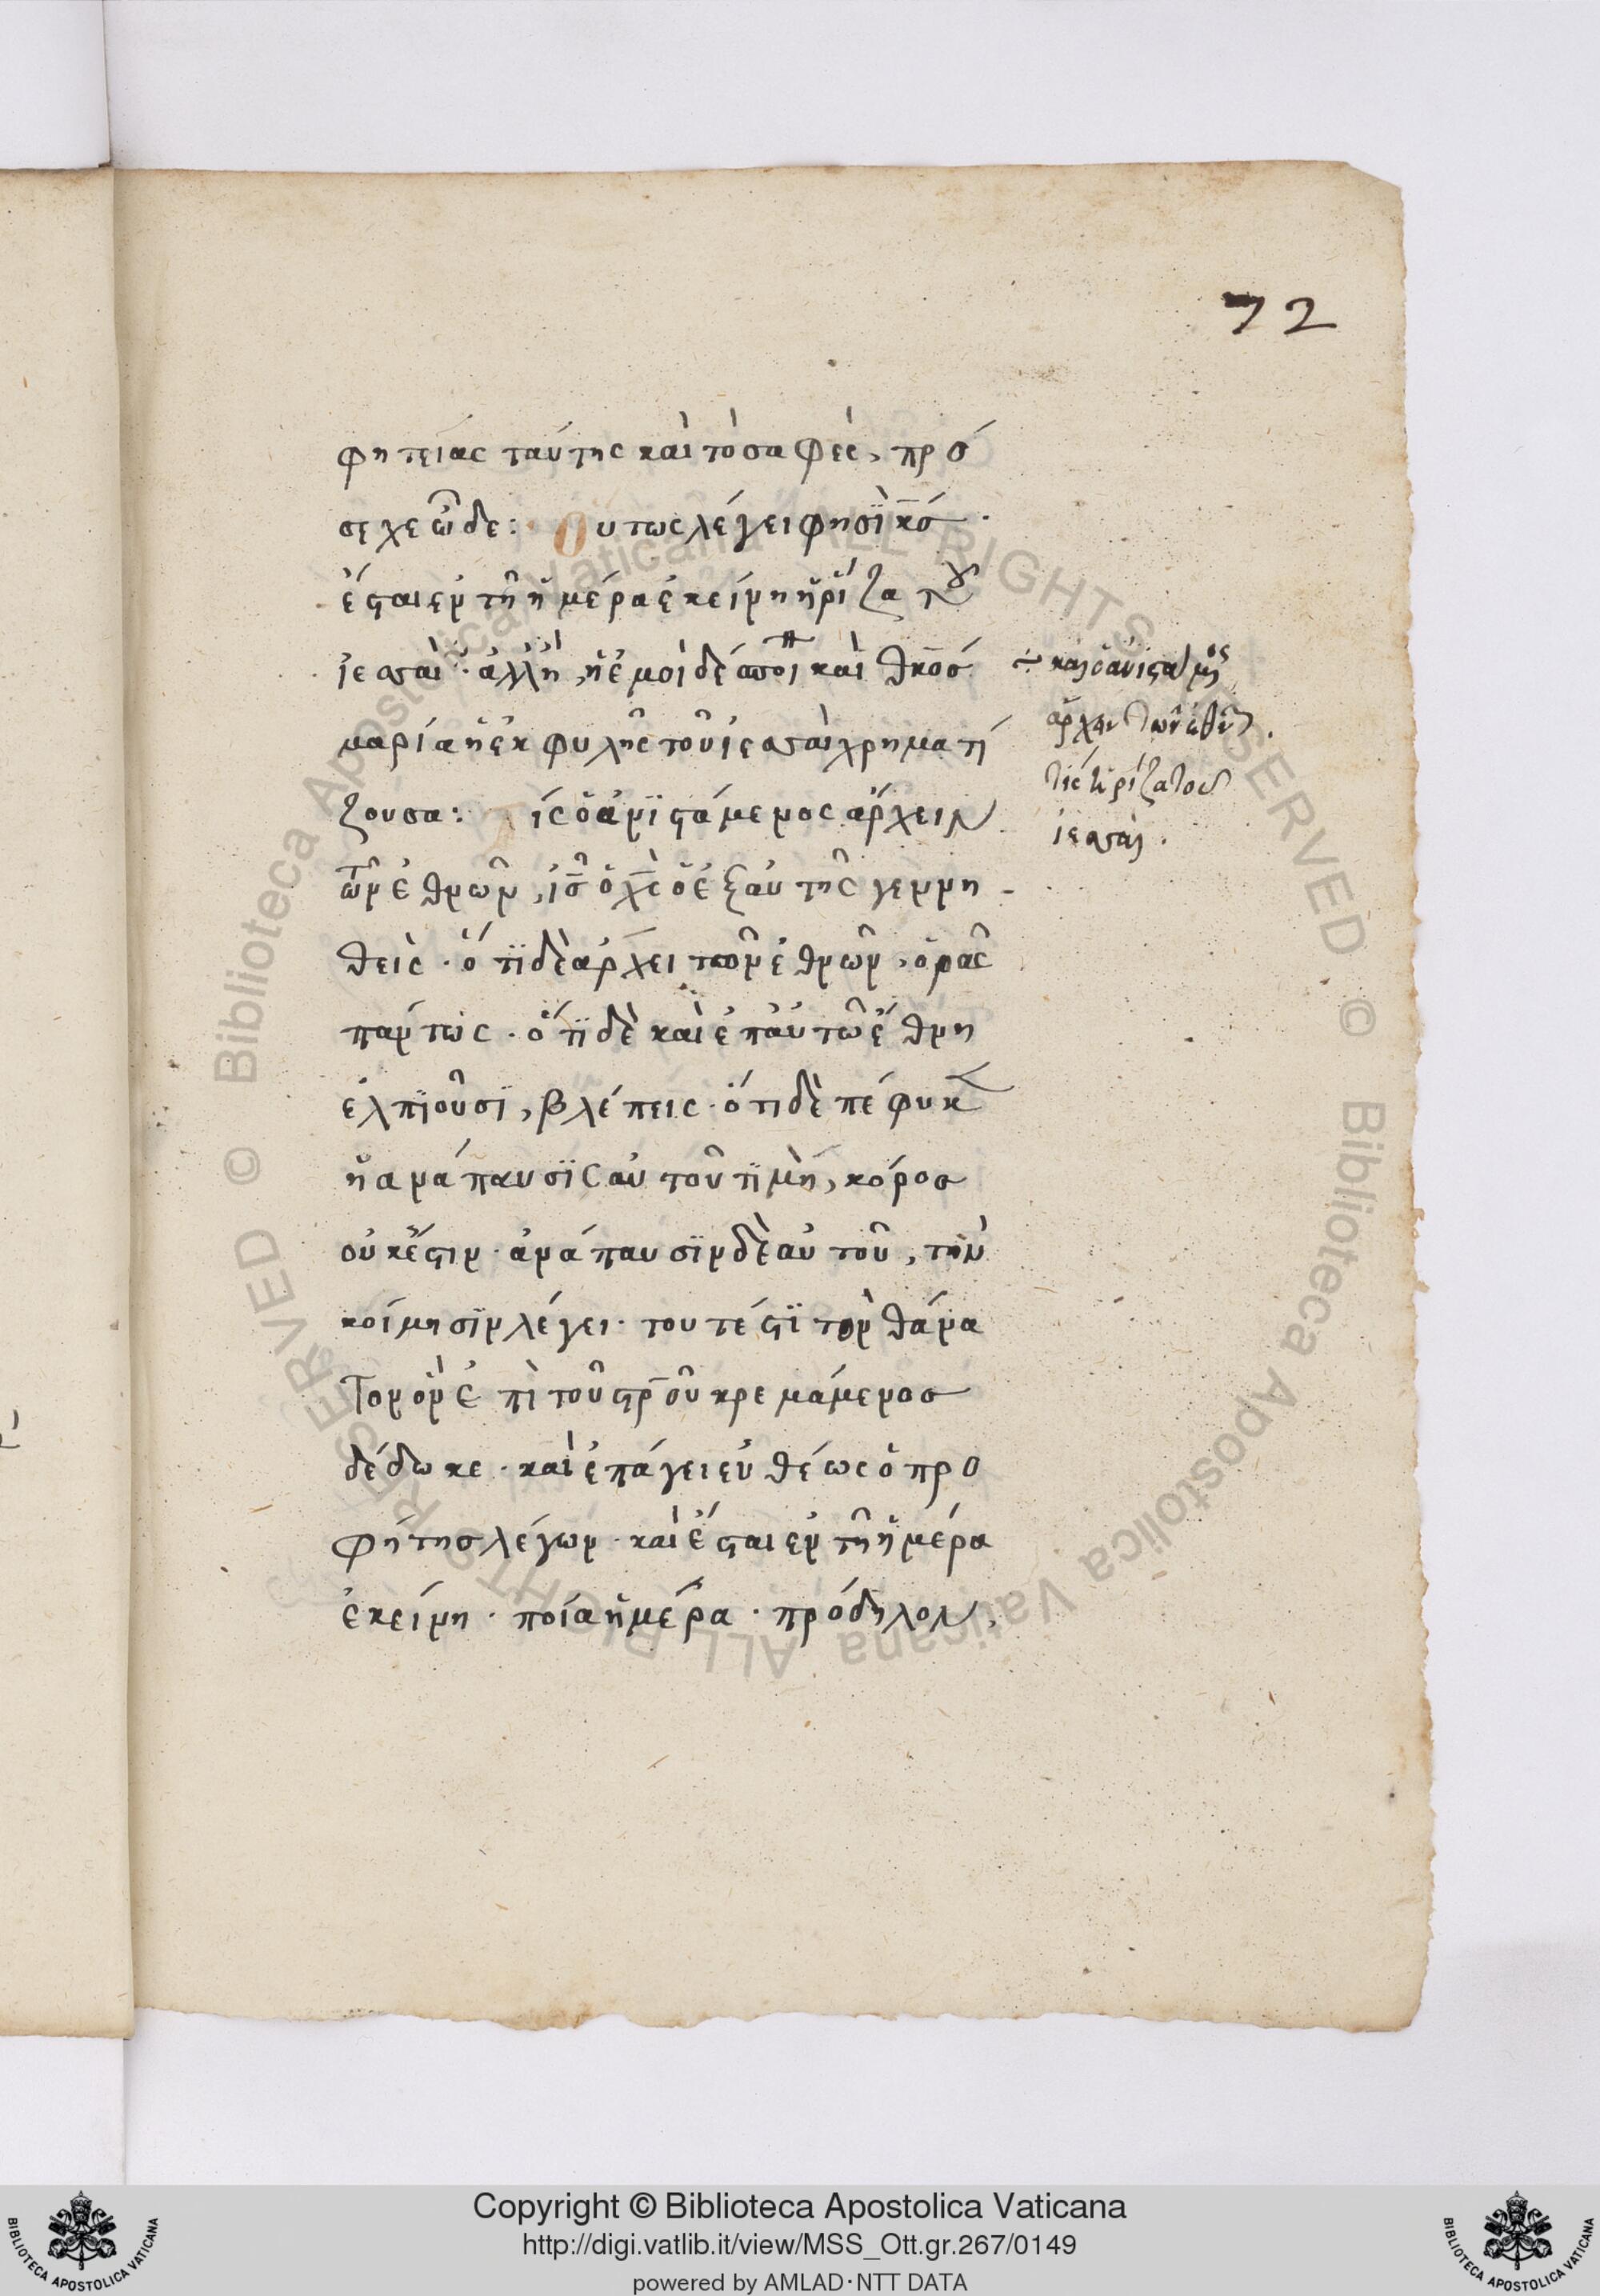 72
φητείας ταύτης καὶ τὸ σαφὲς, πρό
σχε ὧδε: Ουτως λέγει φησὶ κς.
ἔσται ἐν τῆ ἡμέρα ἐκείνη ἡ ῥίζα τοῦ
ἰεσσαὶ
μαρία ἡ ἐκ φυλῆς τοῦ ἰεσσαὶ χρηματί
ζουσα: ίς ὁ ἀνϊστάμενος ἄρχειν
τῶν ἐθνῶν, ἰς ὁ χς ὁ ἐξ αὐτῆς γεννη
θεὶς. ὅτϊ δὲ ἄρχει τῶν ἐθνῶν, ὁρᾶς
πάντως. ὅτϊ δὲ καὶ ἐπ αὐτῶ ἔθνη
ἐλπϊοῦσϊ, βλέπεις. ὅτι δὲ πέφυκεν
ἡ ανάπαυσϊς αὐτοῦ τϊμὴ, κόρος
οὐκ ἔστιν. ἀνάπαυσϊν δὲ αὐτοῦ, τὴν
κοίμησϊν λέγει. τουτέστϊ τὸν θάνα
τον ὃν ἐπὶ τοῦ στρου κρεμάμενος
δέδωκε. καὶ ἐπάγει εὐθέως ὁ προ
φήτης λέγων. καὶ ἔσται ἐν τῆ ἡμέρα
ἐκείνη. ποία ἡμέρα. πρόδηλον,
καὶ ὁ ἀνιστάμενος
ἄρχειν τῶν ἐθνῶν.
τίς ἡ ρίζα τοῦ
ἰεσσαί.
Copyright © Biblioteca Apostolica Vaticana
http://digi.vatlib.it/view/MSS_Ott.gr.267/0149
powered by AMLAD·NTT DATA